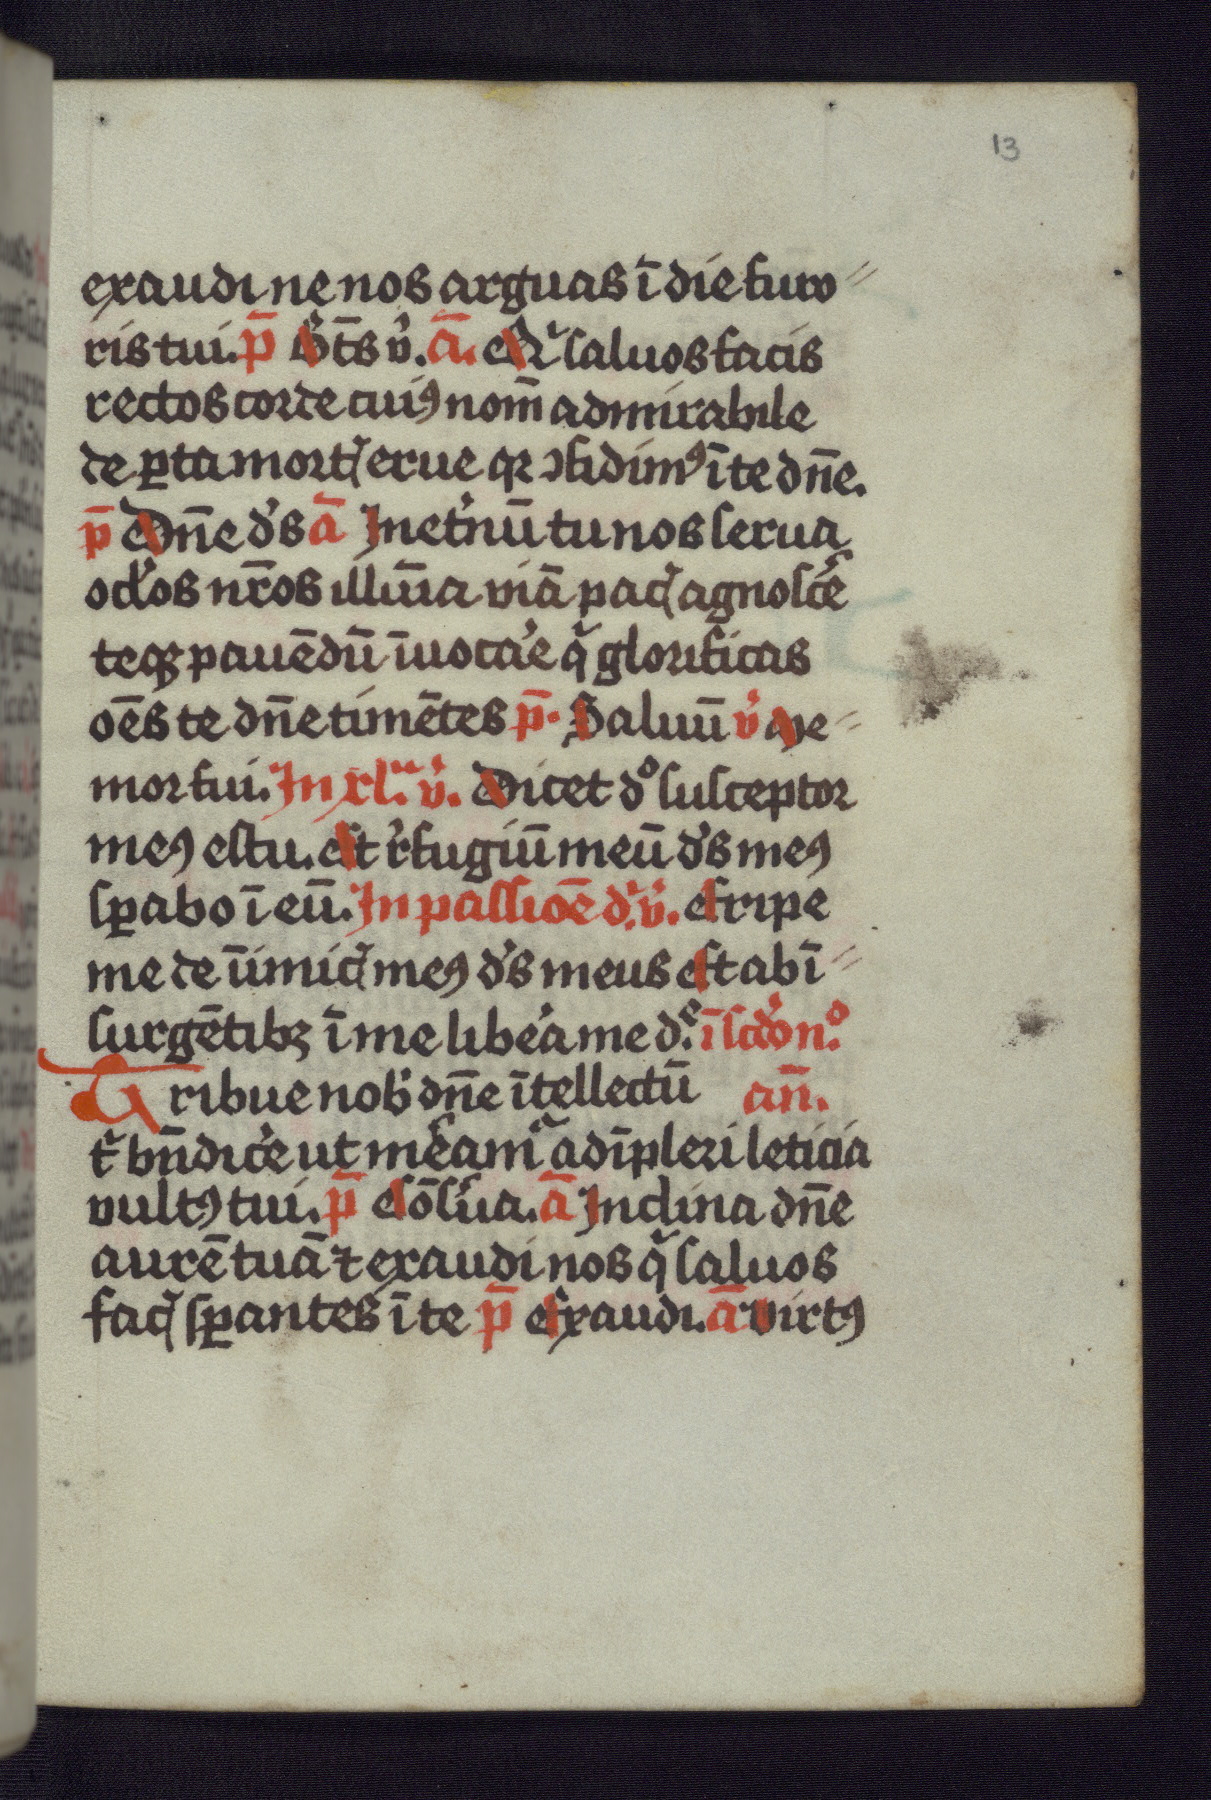 13
exaudi ne nos arguas ī die furo⸗
ris tui. p̄ S c̄ts v̓. ā. Qͥ saluos facis
rectos corde cuiꝰ nom̄ admirabile
de ꝑta mortꝭ erue qꝛ ↄfidimꝰ ī te dn̄e.
p̄ Dn̄e d̓s ā In et̓nū tu nos serua
oc̓los nr̄os illum̄a viā pacꝭ agnosc̓e
teqꝫ pauēdū īuocar̓e qͣ glorificas
oēs te dn̄e timētes p̄. Saluū v̓ Me⸗
mor fui. In xlᵐᵃ. v̓. Dicet d̊ susceptor
meꝰ es tu. Et r̓fugiū meū d̓s meꝰ
sꝑabo ī eū. In passiōe d̓. v̓. Eripe
me de inimicꝭ meꝰ d̓s meus Et ab ī⸗
surgētibꝫ ī me libe̓a me dᵉ. ī scd̓o n̊.
Tribue nob̓ dn̄e ītellectū an̄.
t̓ bn̄dic̓e ut me̓amͣ adīpleri leticia
vultꝰ tui. p̄ Cōs̓ua. ā Inclina dn̄e
aurē tuā ⁊ exaudi nos qͥ saluos
facꝭ sꝑantes ī te p̄ Exaudi. ā virtꝰ